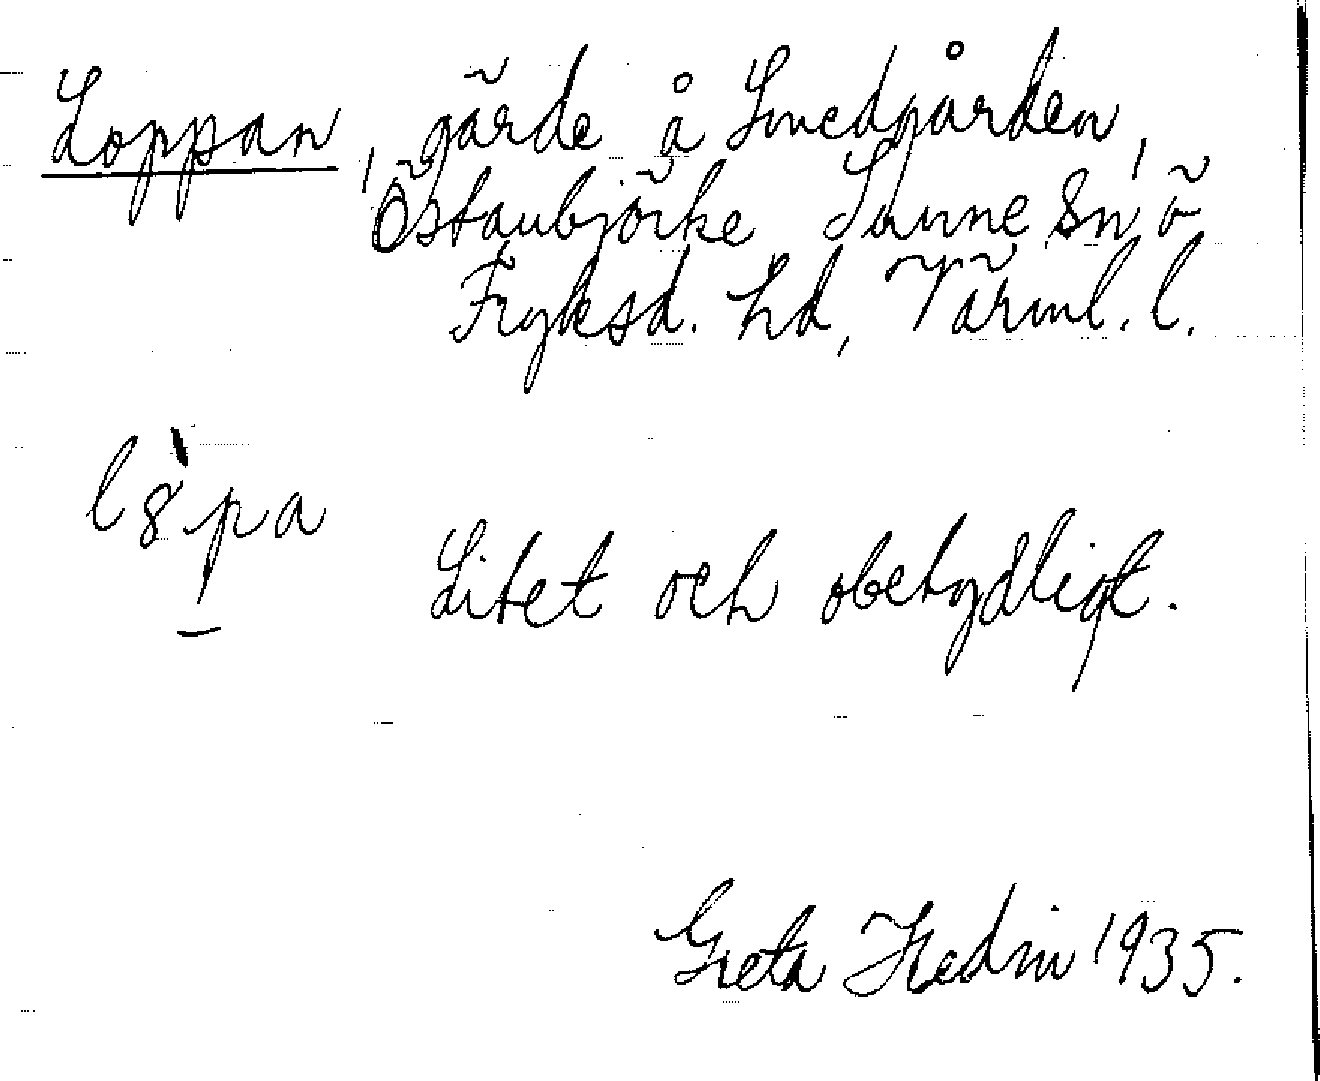 Loppan, gärde å Smedgården,
Östanbjörke Sunne Sn o
Fryksd. hd, Värml. l.
l8̀pa
Litet och obetydligt.
Greta Hedin 1935.